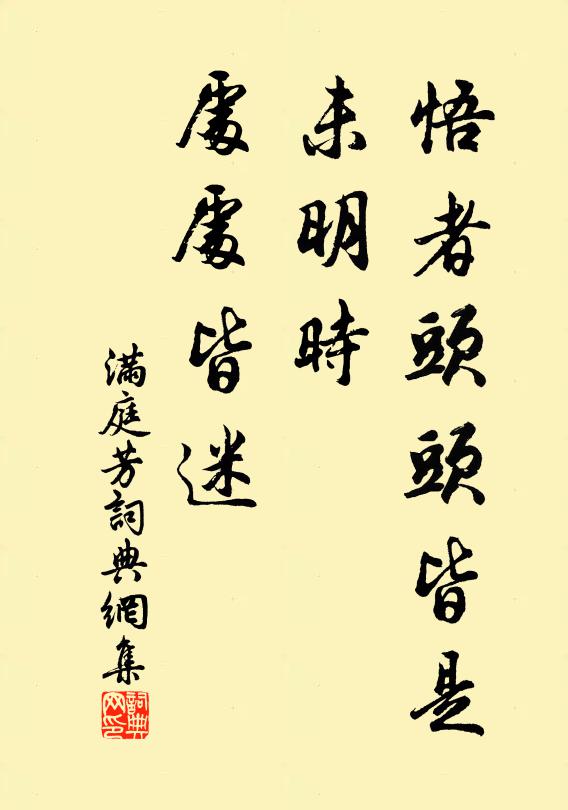 悟者頭頭皆是
未明時
處處皆迷
滿庭芳詞典網集
詞典
网印